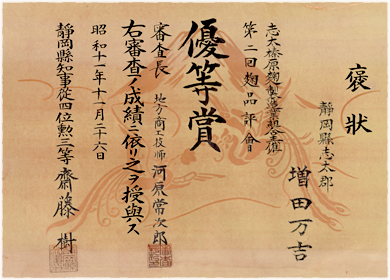 褒狀
静岡縣志太郡
増田万吉
志太榛原麹製造業組合主催
第二回麹品評會
優等賞
審査長 地方商工技師 河原常次郎
右審査ノ成績ニ依リ之ヲ授與ス
昭和十一年十一月二十六日
静岡縣知事從四位勲三等齋藤樹